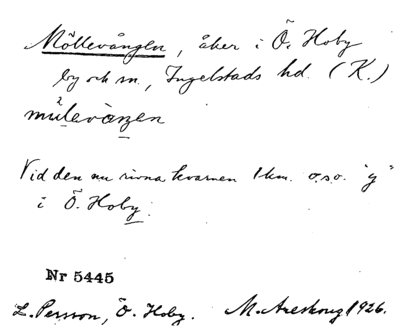 Möllevången, åker i Ö. Hoby
by och sn, Ingelstads hd. (K.)
mølevàŋen
Vid den nu rivna kvarnen 1 km. o.s.o. "y"
i Ö. Hoby.
Nr 5445
L. Persson, Ö. Hoby. M. Areskoug 1926.